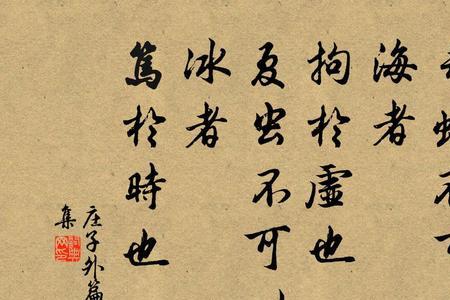 海者
拘於虛也
夏虫不可
冰者
篤於時也
庄子外篇
集